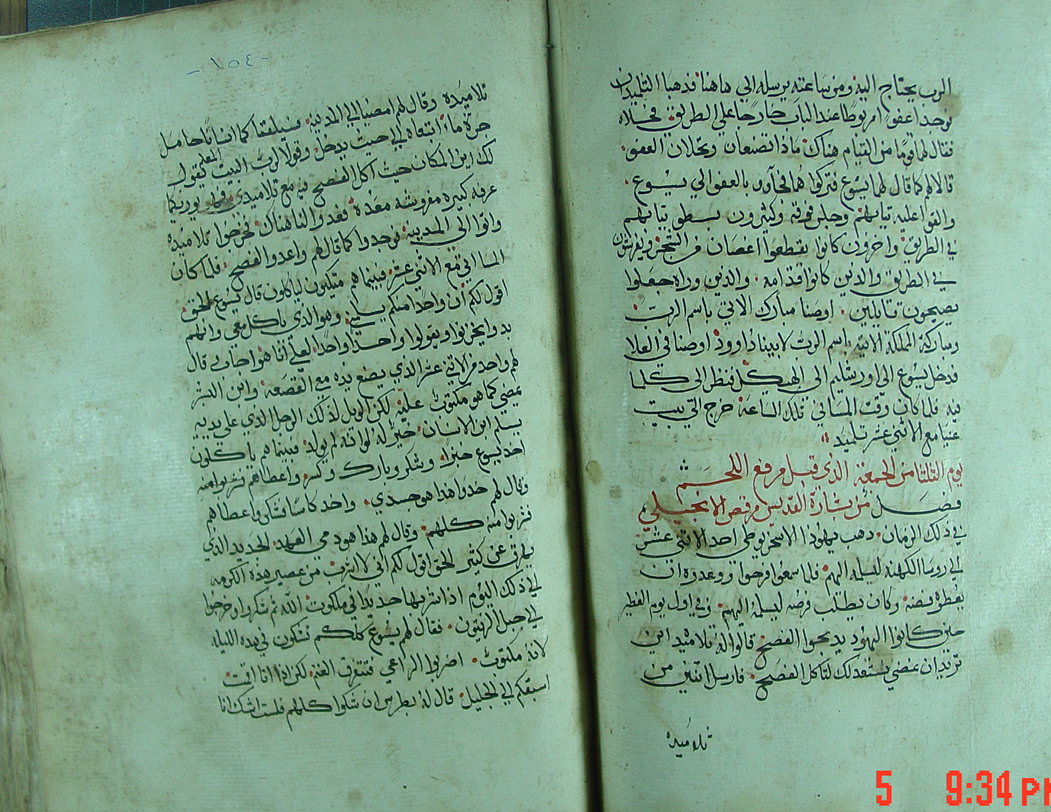 الرب يحتاج اليه ومن ساعته يرسله الي هاهنا فذهبا التلميذان
فوجدا عفوا مربوطا عند الباب خارجا علي الطريق فحلاه
فقال لهما قوما من القيام هناك ماذا تصنعان وتحلان العفو
قالا لهم كما قال لهما يسوع فتركوهما فجا وا بالعفو الي يسوع
والقوا عليه ثيابهم وجلس فوقه وكثيرون بسطوا ثيابهم
في الطريق واخرون كانوا يقطعوا اغصان من الشجر ويفرشون
في الطريق والذين كانوا قدامه والذين وراه جعلوا
يصيحون قايلين اوصنا مبارك الاتي باسم الرب
ومباركة المملكة الاتيه باسم الرب لابينا داوود اوصنا في العلا
فدخل يسوع الي اورشليم الي الهيكل فنظر الي كلما
فيه فلما كان وقت المساء في تلك الساعة خرج الي بيت
عنيا مع الاثني عشر تلميذ
يوم الثلثا من الجمعة الذي قبل مرفع اللحم
فصل من بشارة القديس مرقص الانجيلي
في ذلك الزمان ذهب يهوذا الاسخريوطي احد الاثني عشر
الي روسا الكهنة ليسلمه اليهم فلما سمعوا فرحوا ووعدوه ان
يعطوه فضة وكان يطلب فرصه ليسلمه اليهم وفي اول يوم الفطير
حين كانوا اليهود يدبحوا الفصح قالوا له تلاميذه اين
تريد ان نمضي نستعد لك لتاكل الفصح فارسل اثنين من
تلاميذه
١٥٤
تلاميذه وقال لهم امضيا الي المدينه فسيلقاكما انسانا حامل
جرة ماء اتبعاه الي حيث يدخل وقولا لرب البيت المعلم يقول
لك اين المكان حيث اكل الفصح فيه مع تلاميذي فهو يوريكما
غرفه كبيره مفروشه معده فعدوا لنا هناك فخرجوا تلاميذه
واتوا الي المدينه فوجدوا كما قال لهم واعدوا الفصح فلما كان
المسا اتي مع الاثني عشر فبينما هم متكيون ياكلون قال يسوع الحق
اقول لكم ان واحدا منكم يسلمني وهو الذي ياكل معي وانهم
بدوا يحزنوا ويقولوا واحدا واحدا لعل انا هو اجاب وقال
لهم واحد من الاثني عشر الذي يضع يده مع القصعه وابن البشر
يمضي كما هو مكتوب عليه لكن الويل لذلك الرجل الذي علي يديه
يسلم ابن الانسان خير له لو انه لم يولد فبينما هم ياكلون
اخذ يسوع خبزا وشكر وبارك وكسر واعطاهم
وقال لهم خذوا هذا هو جسدي واخد كاسا فشكر واعطاهم
فشربوا منه كلهم وقال لهم هذا هو دمي العهد الجديد الذي
يهرق عن كثير الحق اقول لكم اني لا اشرب من عصير هذه الكرمه
الي ذلك اليوم اذا شربتها جديدا في ملكوت الله ثم شكروا وخرجوا
الي جبل الزيتون فقال لهم يسوع كلكم تشكون في هذه الليله
لانه مكتوب اضرب الراعي فتتفرق الغنم لكن اذا انا قمت
اسبقكم الي الجليل قال له بطرس ان شكوا كلهم فلست اشك انا
5 9:34 PM